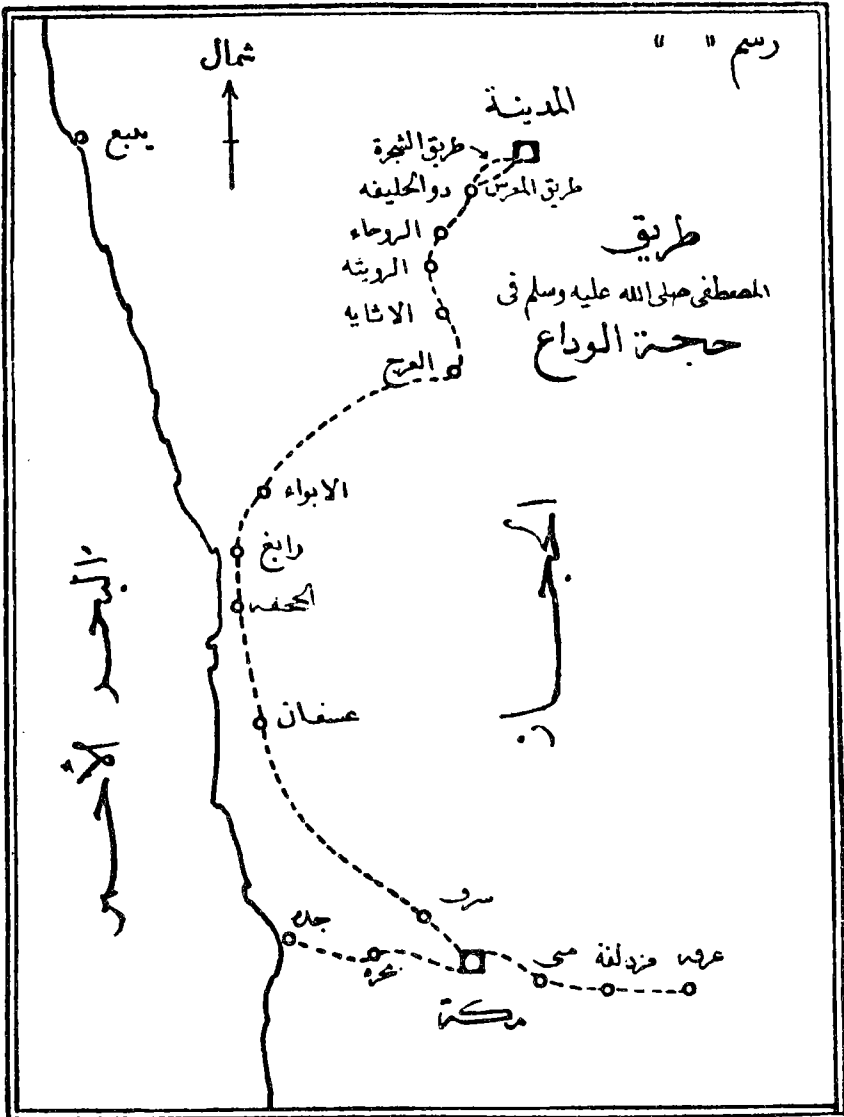 رسم " "
شمال
المدينة
ينبع
طريق الشجرة
طريق المعرس
ذو الحليفه
الروحاء
الرويثه
الاثايه
العرج
طريق
المصطفى صلى الله عليه وسلم فى
حجة الوداع
الابواء
رابغ
الجحفه
عسفان
البحر الأحمر
سرف
جده
مكة
منى
مزدلفة
عرفه